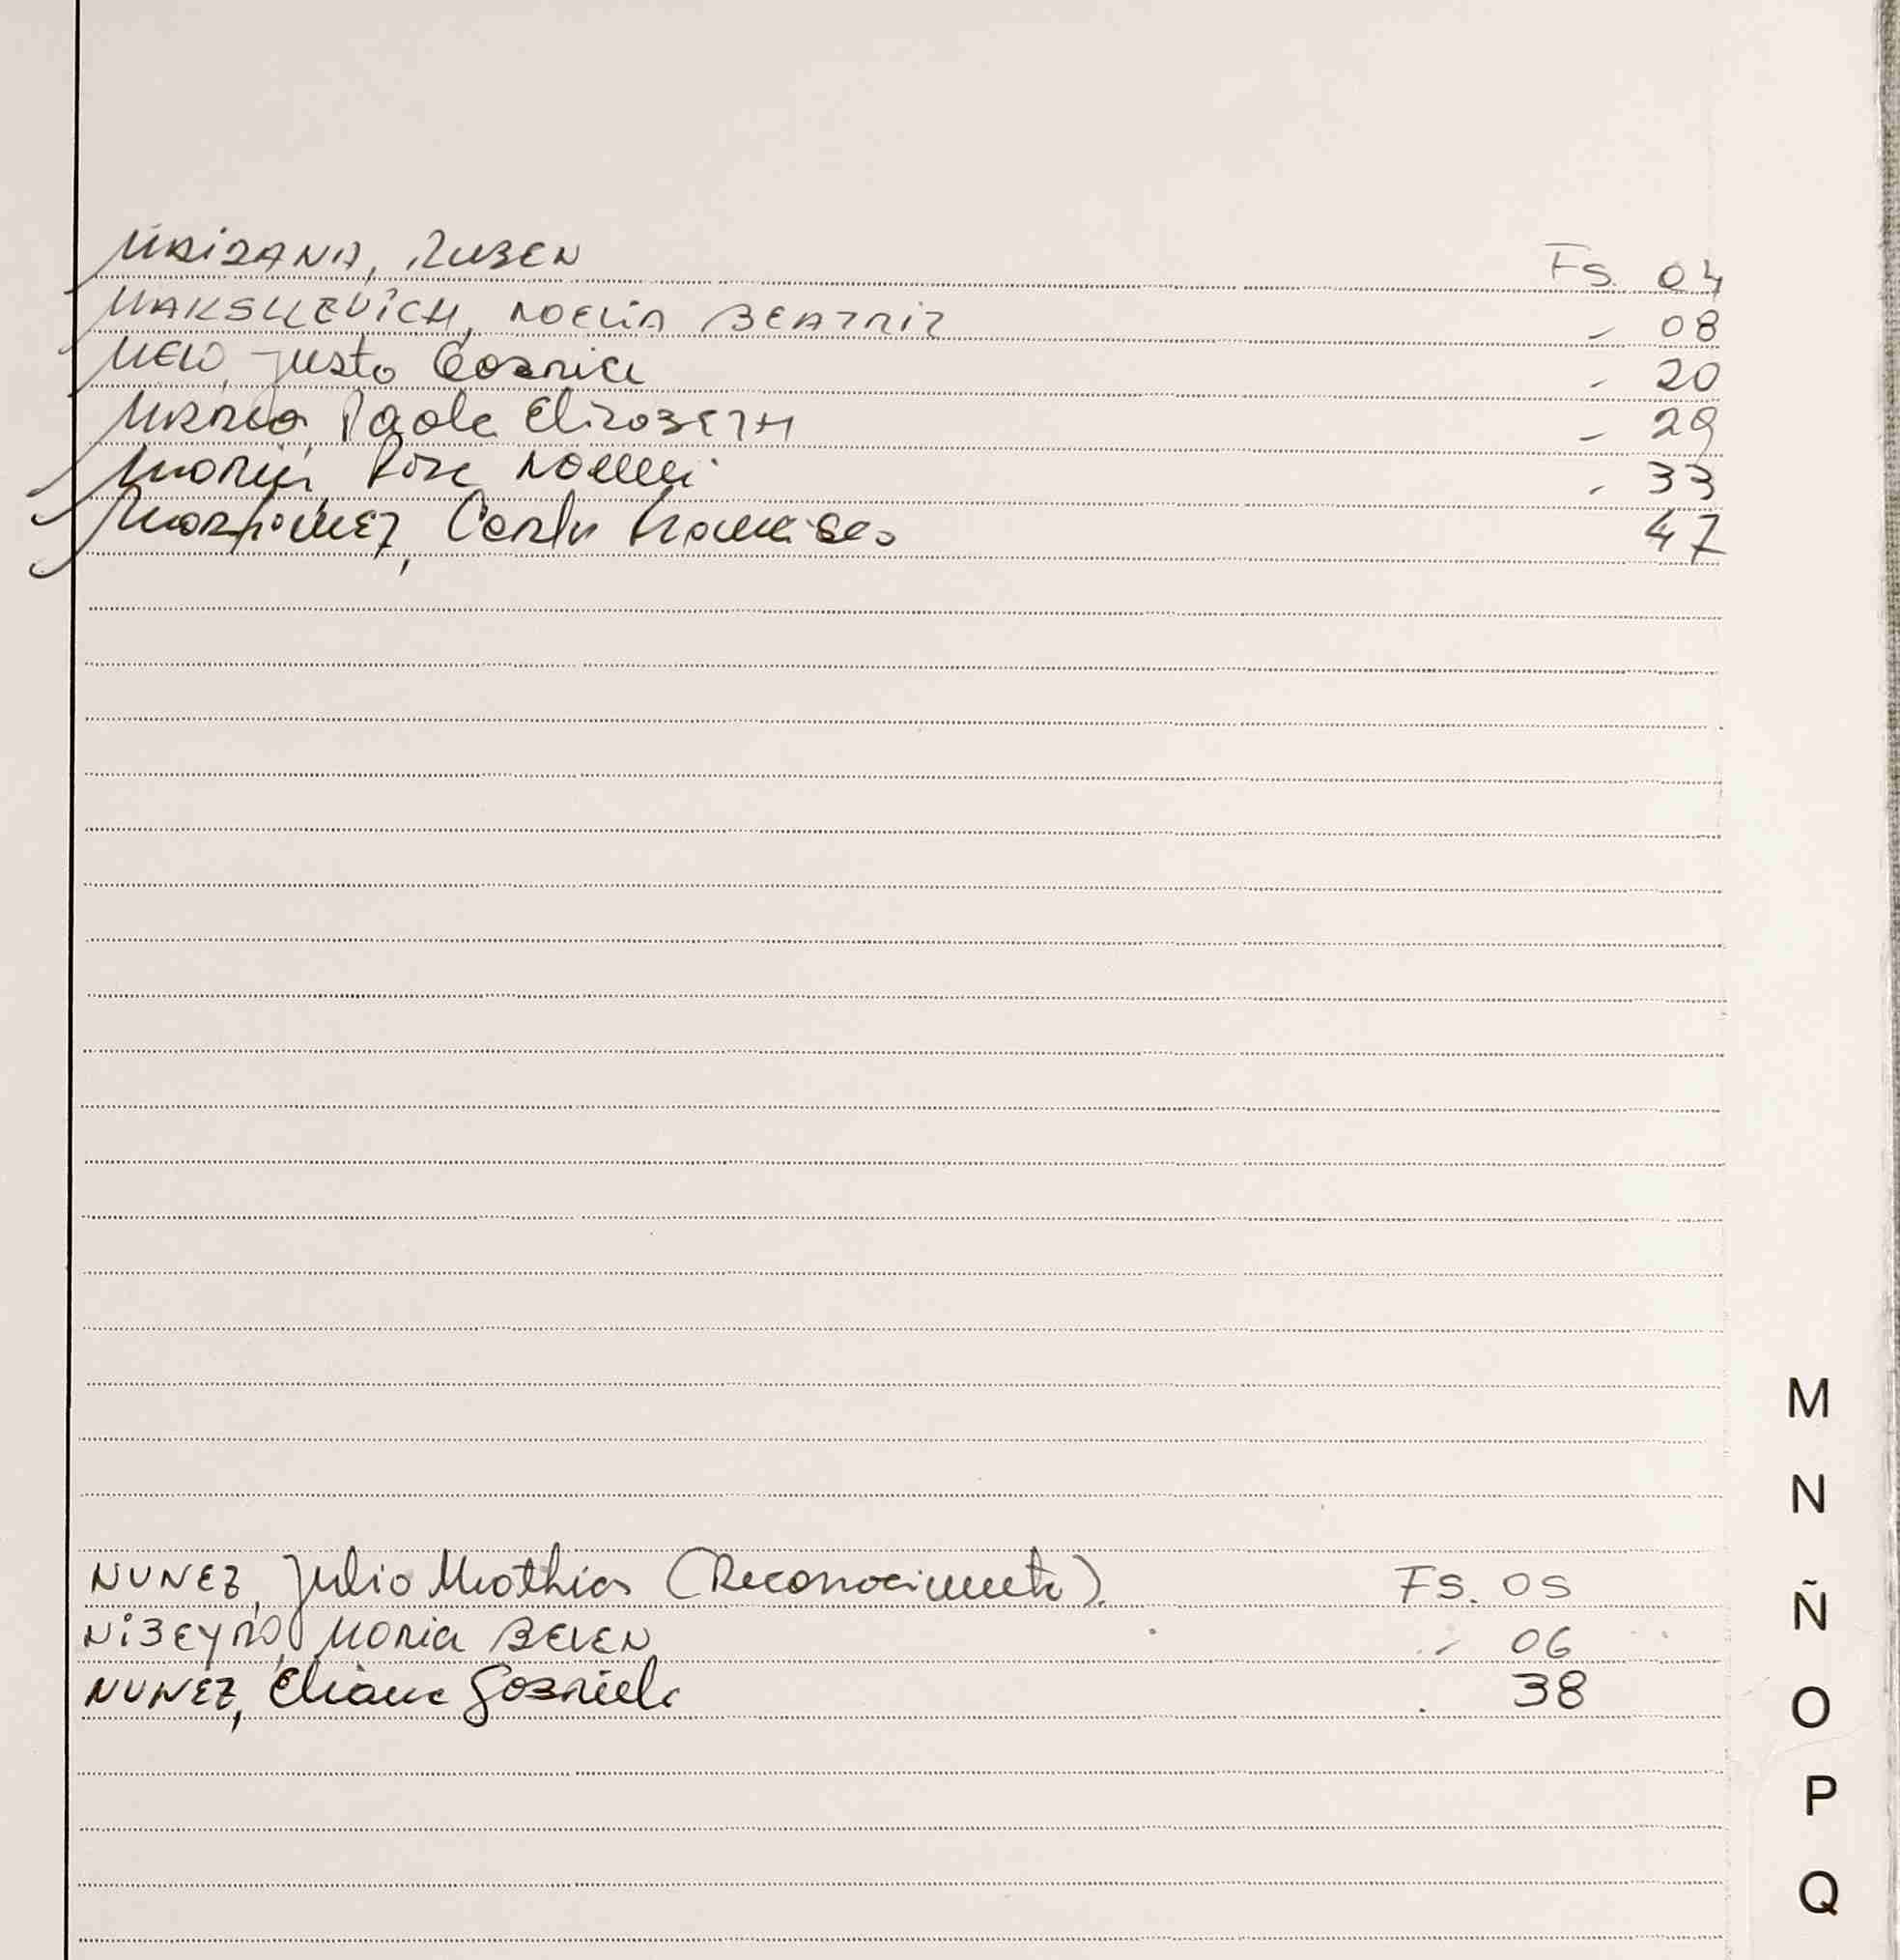 MAIDANA, RUBEN Fs. 04
MAKSUEVICH, NOELIA BEATRIZ - 08
MELO, Justo Gabriel - 20
Paola Elizabeth - 29
Marin, Rosa Noemi - 33
Martinez, Carlos Francisco 47
M
N
NUNEZ, Julio Mathias (Reconocimiento). Fs. 05
Ñ
NIBEYRO, Maria BELEN - 06
NUNEZ, Eliana Gabriela . 38
O
P
Q